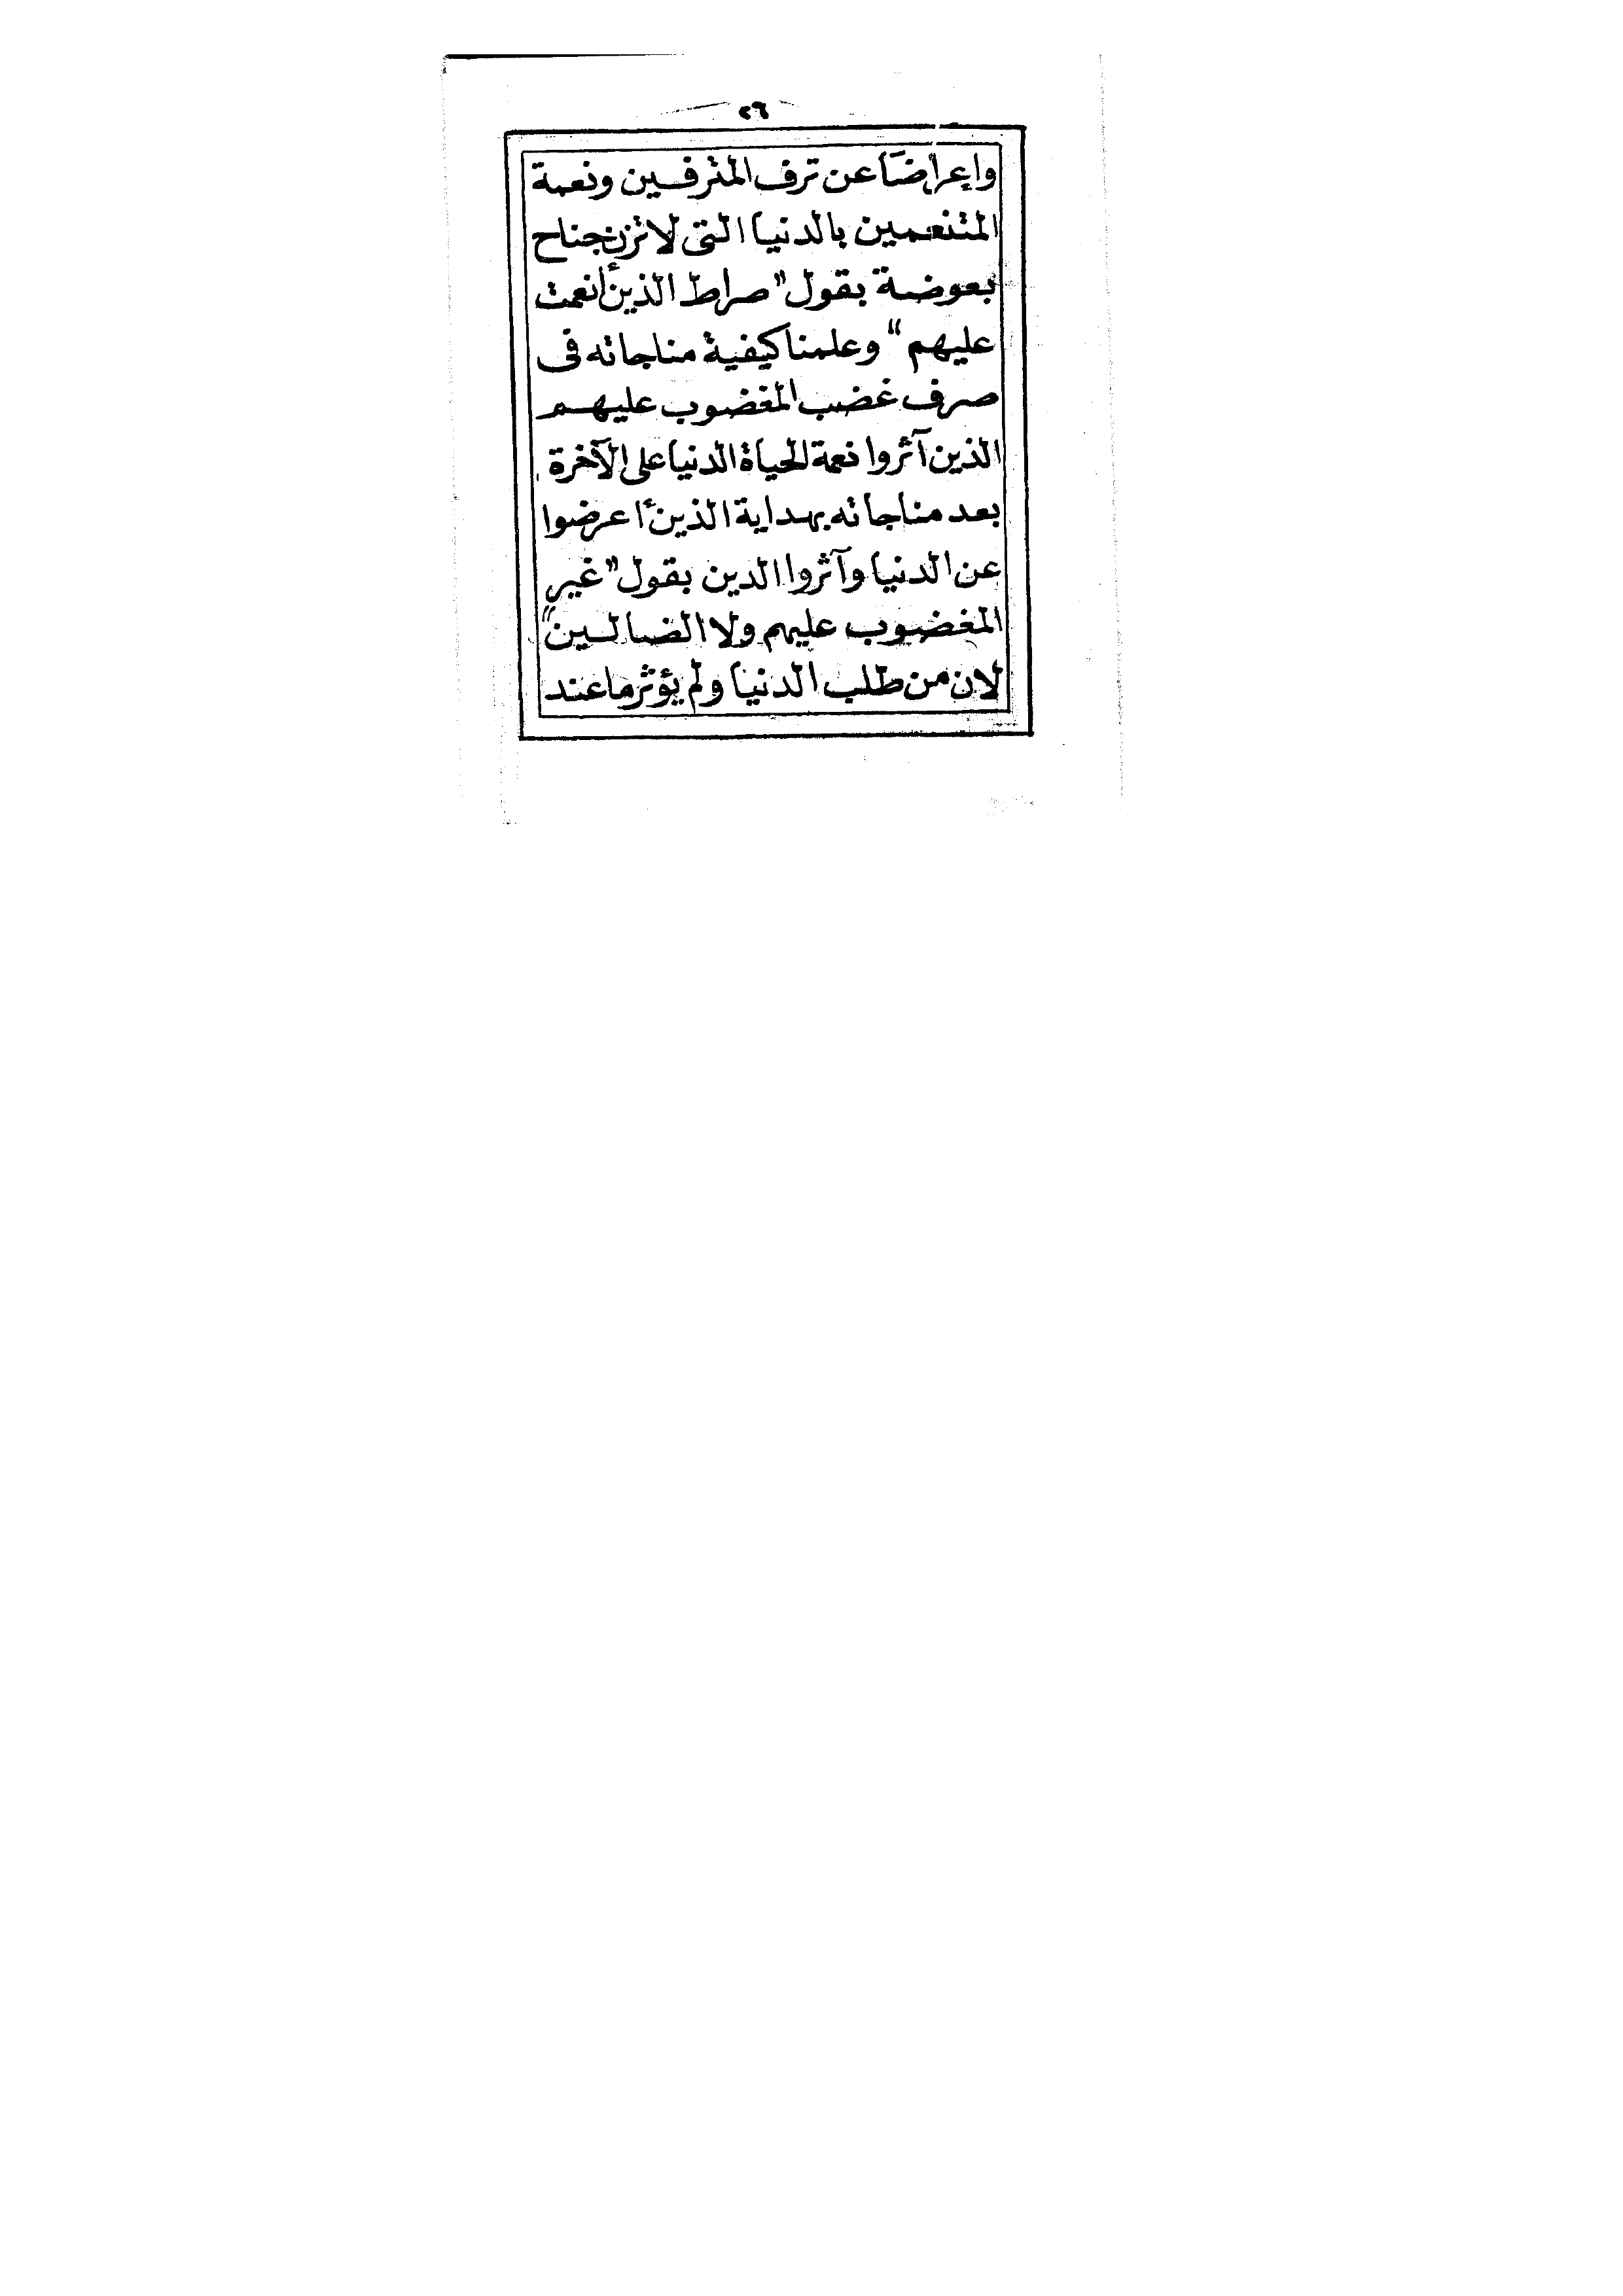 ٢٦
وإعراضًا عن ترف المترفين ونعمة
المتنعمين بالدنيا التى لا تزن جناح
بعوضة بقول "صراط الذين أنعمت
عليهم" وعلمنا كيفية مناجاته فى
صرف غضب المغضوب عليهم
الذين آثروا نعمة الحياة الدنيا على الآخرة
بعد مناجاته بهداية الذين أعرضوا
عن الدنيا وآثروا الدين بقول "غير
المغضوب عليهم ولا الضالين"
لان من طلب الدنيا ولم يؤثر ما عند